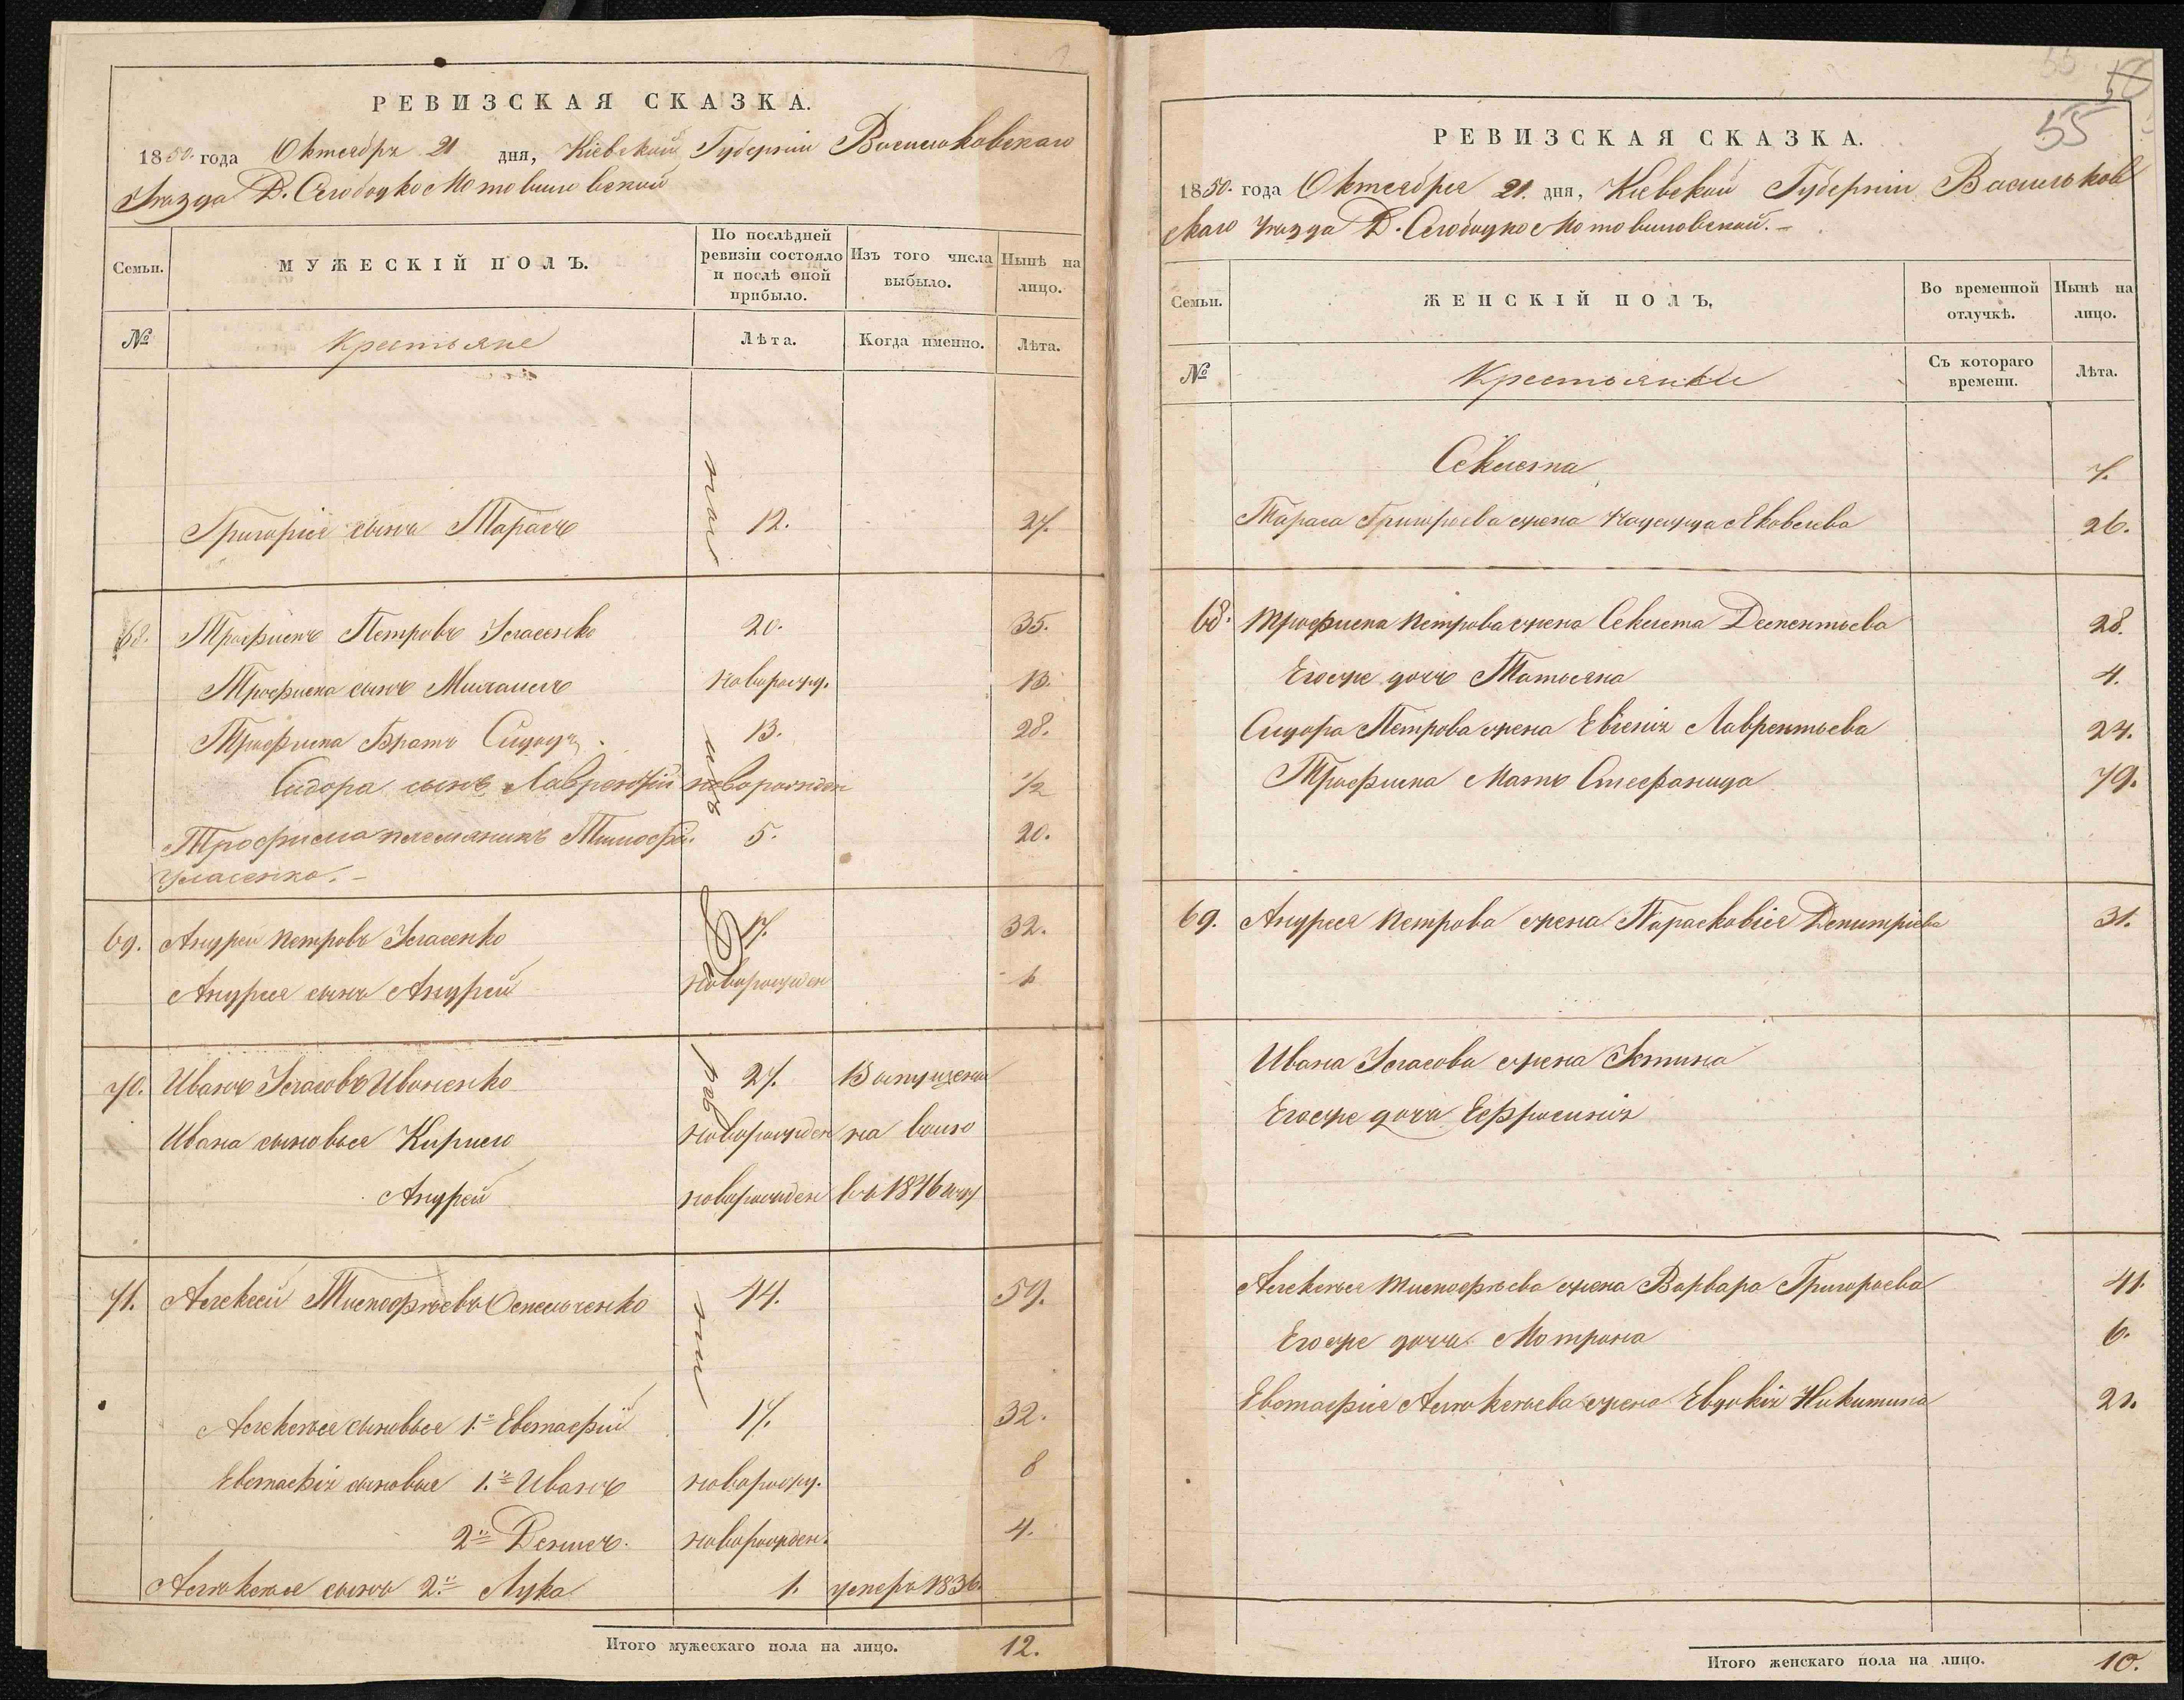 РЕВИЗСКАЯ СКАЗКА.
1850. года Октября 21 дня, Кіевской Губерніи Васильковскаго
Уѣзда Д. Слободкомотовиловской
Семьи. МУЖЕСКІЙ ПОЛЪ. По послѣдней ревизіи состояло и послѣ оной прибыло. Изъ того числа выбыло. Нынѣ на лицо.
№ Крестьяне Лѣта. Когда именно. Лѣта.
Григорія сынъ Тарасъ 12. 27.
68. Трофимъ Петровъ Уласенко 20. 35.
Трофима сынъ Михаилъ новорожд. 13.
Трофима Братъ Сидоръ 13. 28.
Сидора сынъ Лаврентій новорожден 1/2
Трофима племянникъ Тимофей 5. 20.
Уласенко. –
69. Андрей Петровъ Уласенко 17. 32.
Андрея сынъ Андрей новорожден
70. Иванъ Уласовъ Иваненко 27. Выпущены
Ивана сыновья Кирило новорожден на волю
Андрей новорожден въ 1846 году
71. Алексей Тимофѣевъ Омельченко 44. 59.
Алексѣя сыновья 1й Евстафій 17. 32.
Евстафія сыновья 1й Иванъ новорожд. 8
2й Денисъ. новорожден. 4.
Алексѣя сынъ 2й Лука 1. умеръ 1836
Итого мужескаго пола на лицо. 12.
55
РЕВИЗСКАЯ СКАЗКА.
1850. года Октября 21. дня, Кіевской Губерніи Васильков
скаго Уѣзда Д. Слободкомотовиловской. –
Семьи. ЖЕНСКІЙ ПОЛЪ, Во временной отлучкѣ. Нынѣ на лицо.
№ Крестьянки Съ котораго времени. Лѣта.
Секлета 7.
Тараса Григорьева жена Яковлева 26.
68. Трофима Петрова жена Секлета Дементьева 28.
Егоже дочь Татьяна 4.
Сидора Петрова жена Евгенія Лаврентьева 24.
Трофима Мать Стефанида 79.
69. Андрея Петрова жена Парасковія Демитріева 31.
Ивана Уласова жена Устина
Егоже дочь Ефросинія
Алексѣя Тимофѣева жена Варвара Григорьева 41.
Егоже дочь Мотрона 6.
Евстафія Алексѣева жена Евдокія Никитина
Итого женскаго пола на лицо. 10.